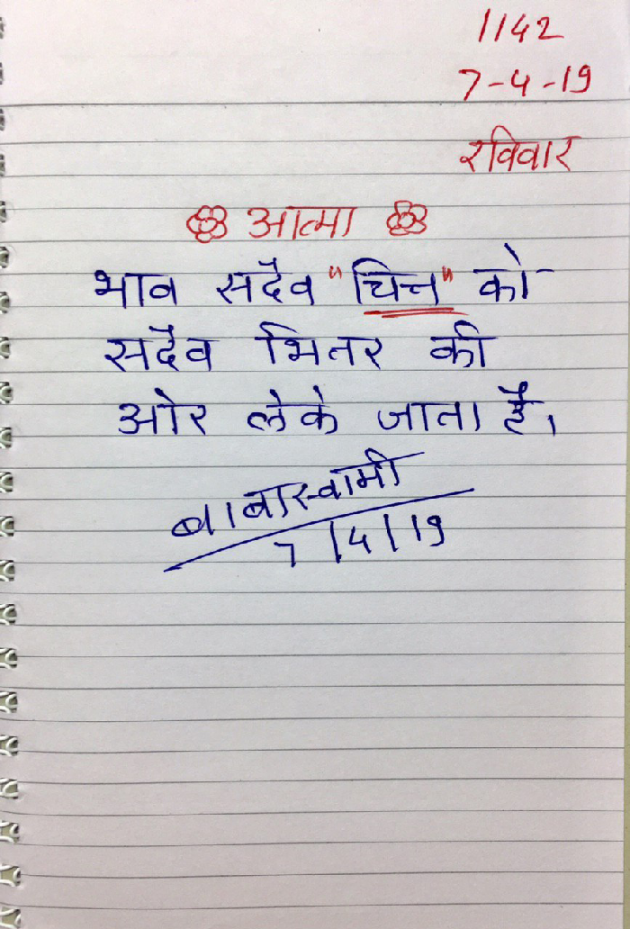 1142
7-4-19
रविवार
आत्मा
भाव सदैव "चित्त" को
सदैव भितर की
ओर लेके जाता है।
बाबास्वामी
7/4/19